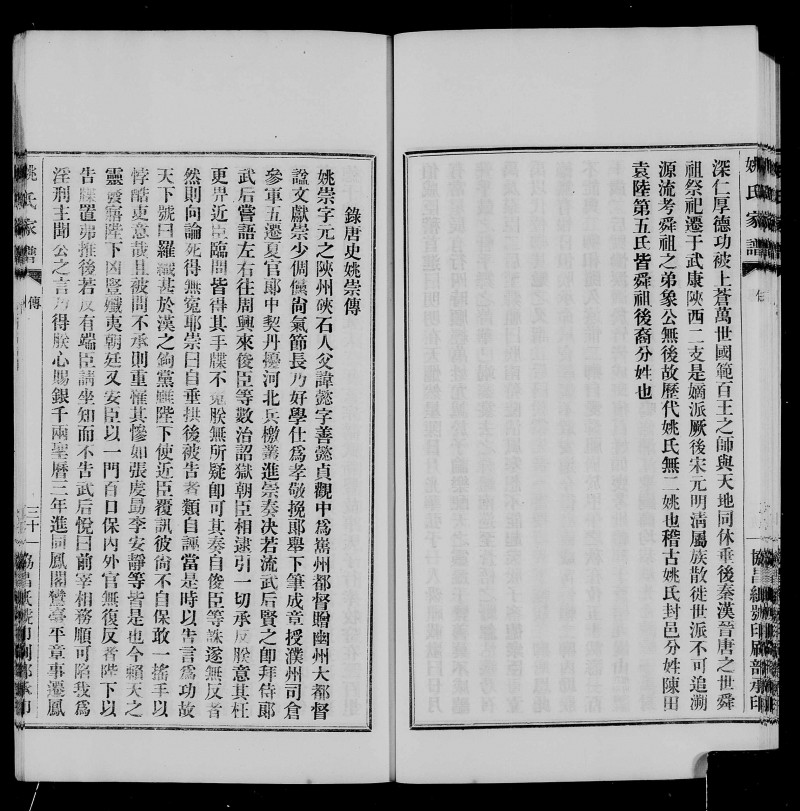 姚氏家譜
傳
協昌綢號印刷部承印
深仁厚德功被上蒼萬世國範百王之師與天地同休垂後秦漢晉唐之世舜
祖祭祀遷于武康陝西二支是嫡派厥後宋元明清屬族散徙世派不可追溯
源流考舜祖之弟象公無後故歷代姚氏無二姚也稽古姚氏封邑分姓陳田
袁陸第五氏皆舜祖後裔分姓也
錄唐史姚崇傳
姚崇字元之陝州硤石人父諱懿字善懿貞觀中爲嶲州都督贈幽州大都督
諡文獻崇少倜儻尚氣節長乃好學仕爲孝敬挽郞舉下筆成章授濮州司倉
參軍五遷夏官郞中契丹擾河北兵檄叢進崇奏決若流武后賢之卽拜侍郞
武后嘗語左右往周興來俊臣等數治詔獄朝臣相逮引一切承反朕意其枉
更畀近臣臨問皆得其手牒不冤朕無所疑卽可其奏自俊臣等誅遂無反者
然則向論死得無冤耶崇曰自垂拱後被告者類自誣當是時以告言爲功故
天下號曰羅織甚於漢之鉤黨雖陛下使近臣覆訊彼尙不自保敢一搖手以
悖酷吏意哉且被問不承則重罹其慘如張虔勗李安靜等皆是也今賴天之
靈發寤陛下凶豎殲夷朝廷乂安臣以一門百口保內外官無復反者陛下以
告牒置弗推後若反有端臣請坐知而不告武后悅曰前宰相務順可陷我爲
淫刑主聞公之言乃得朕心賜銀千兩聖曆三年進同鳳閣鸞臺平章事遷鳳
姚氏家譜
傳
三十一
協昌綢號印刷部承印